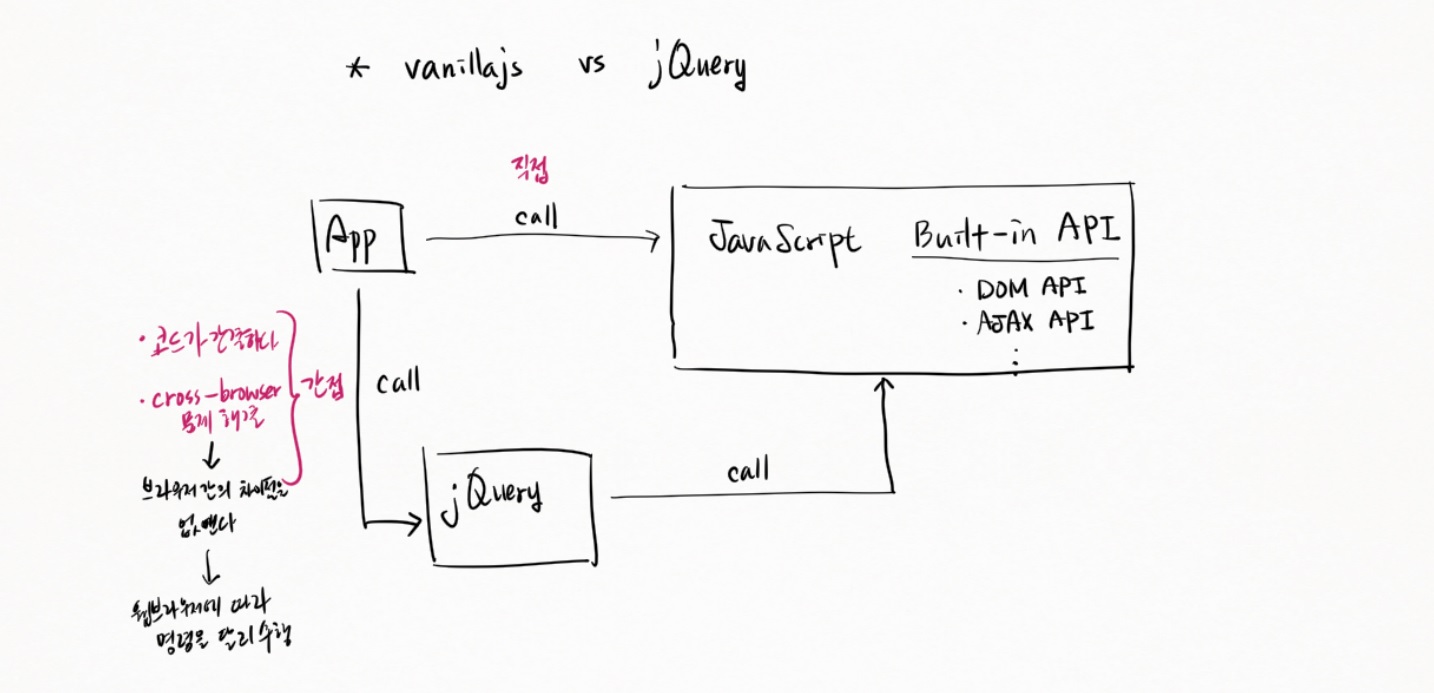 * vanillajs vs jQuery
직접
call
App
JavaScript Built-in API
· DOM API
· AJAX API
⋮
· 코드가 간결하다
· cross-browser
문제 해결
간접
call
브라우저 간의 차이점을
없앤다
웹브라우저에 따라
명령을 달리 수행
jQuery
call